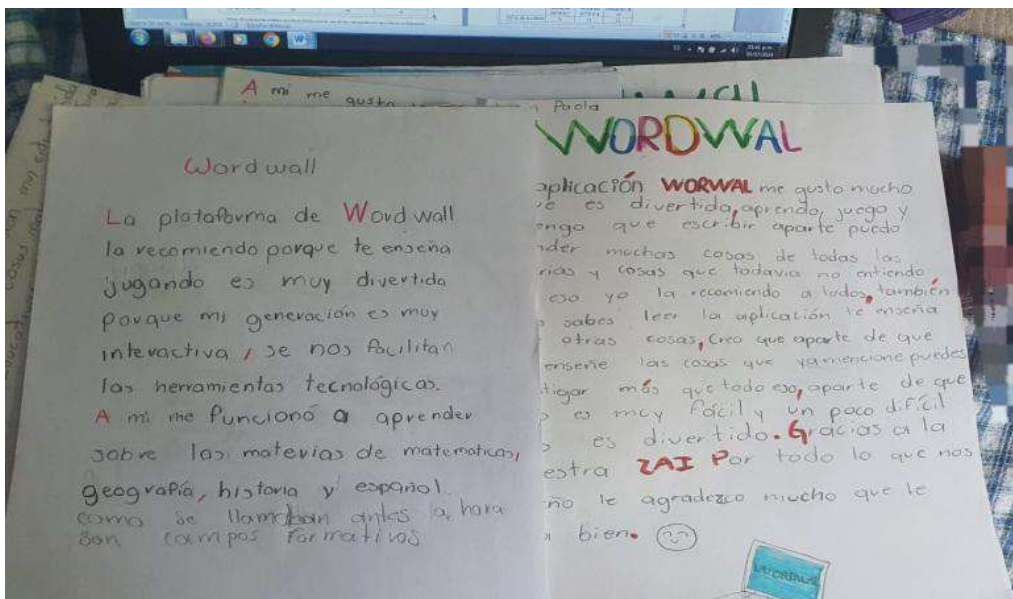 A mi me gusto
Wordwall
La plataforma de Wordwall
la recomiendo porque te enseña
jugando es muy divertida
porque mi generación es muy
interactiva, se nos facilitan
las herramientas tecnológicas.
A mi me funcionó a aprender
sobre las materias de matematicas,
geografía, historia y español.
como se llamaban antes a hora
son campos formativos
Paola
WORDWAL
aplicación WORWAL me gusto mucho
es divertida, aprendo, juego y
que escribir aparte puedo
muchas cosas de todas las
y cosas que todavia no entiendo
eso yo la recomiendo a todos, también
sabes leer la aplicación te enseña
otras cosas, Creo que aparte de que
enseñe las cosas que yamencione puedes
más que todo eso, aparte de que
es muy fácil y un poco dificil
es divertido. Gracias a la
ZAI Por todo lo que nos
le agradezco mucho que le
bien.
WORDWAL